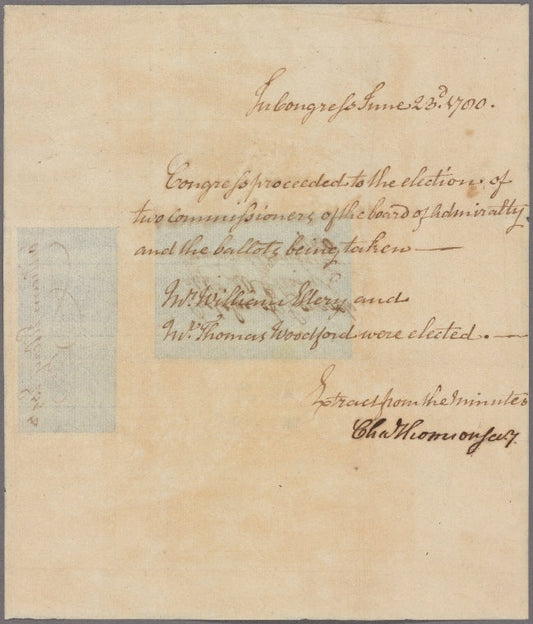 In Congress June 23d. 1780.
Congress proceeded to the election of
two commissioners of the board of Admiralty,
and the ballots being taken —
Mr. William Ellery and
Mr. Thomas Woodford were elected. —
Extract from the minutes
Cha Thomson secy.